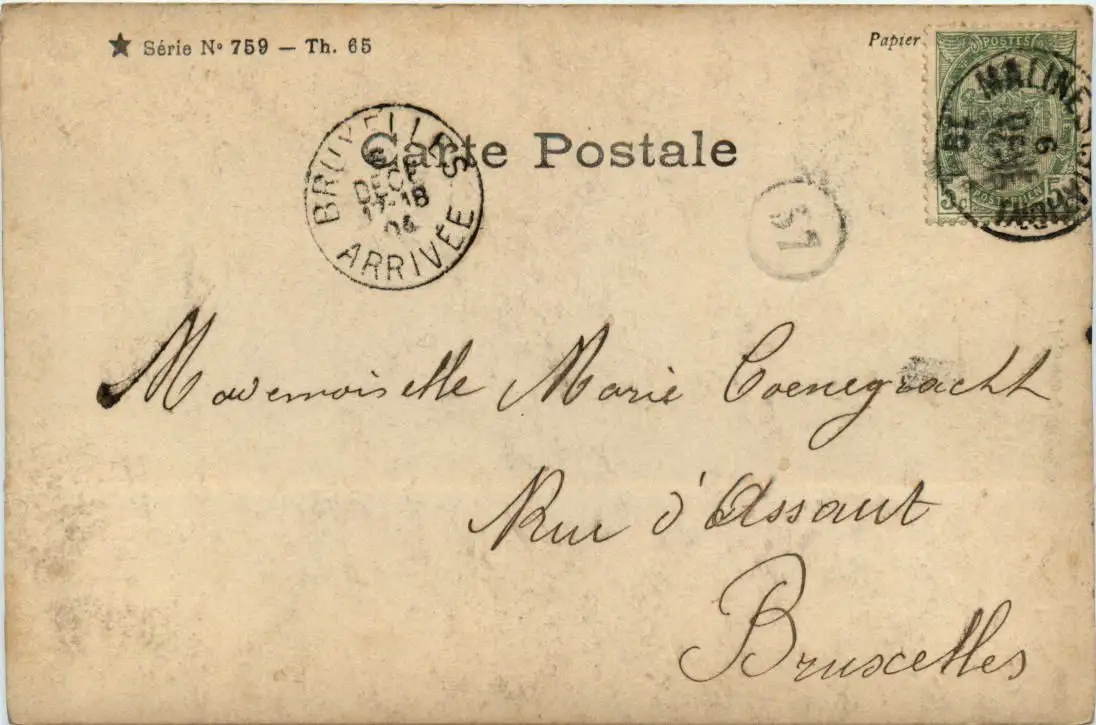 ★ Série Nº 759 — Th. 65
Papier
POSTES
MALINES
5c 5c
BRUXELLES
DEC
17-18
04
ARRIVÉE
Carte Postale
51
Mademoiselle Marie Coenegracht
Rue d'Assaut
Bruxelles